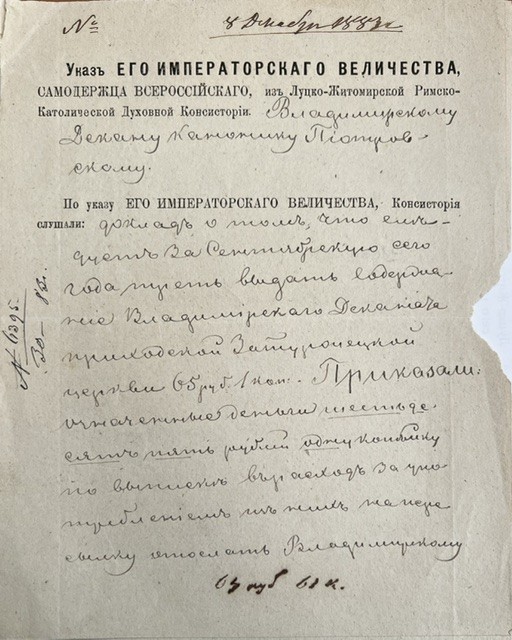 № 8 Декабря 1883 г.
Указъ ЕГО ИМПЕРАТОРСКАГО ВЕЛИЧЕСТВА,
САМОДЕРЖЦА ВСЕРОССІЙСКАГО, изъ Луцко-Житомирской Римско-
Католической Духовной Консисторіи. Владимирскому
Декану канонику Піотров-
скому.
По указу ЕГО ИМПЕРАТОРСКАГО ВЕЛИЧЕСТВА, Консисторія
слушали: докладъ о томъ, что слѣ-
дуетъ за Сентябрскую сего
года треть выдать содержа-
ніе Владимірскаго Деканата
приходской Затуронецкой
церкви 65 руб. 1 коп. Приказали:
означенные деньги шестьде-
сятъ пять рублей одну копѣйку
по выпискѣ въ расходъ за упо-
требленіемъ изъ нихъ на пере
сылку отослать Владимирскому
№ 6395.
30 - 83.
руб к.